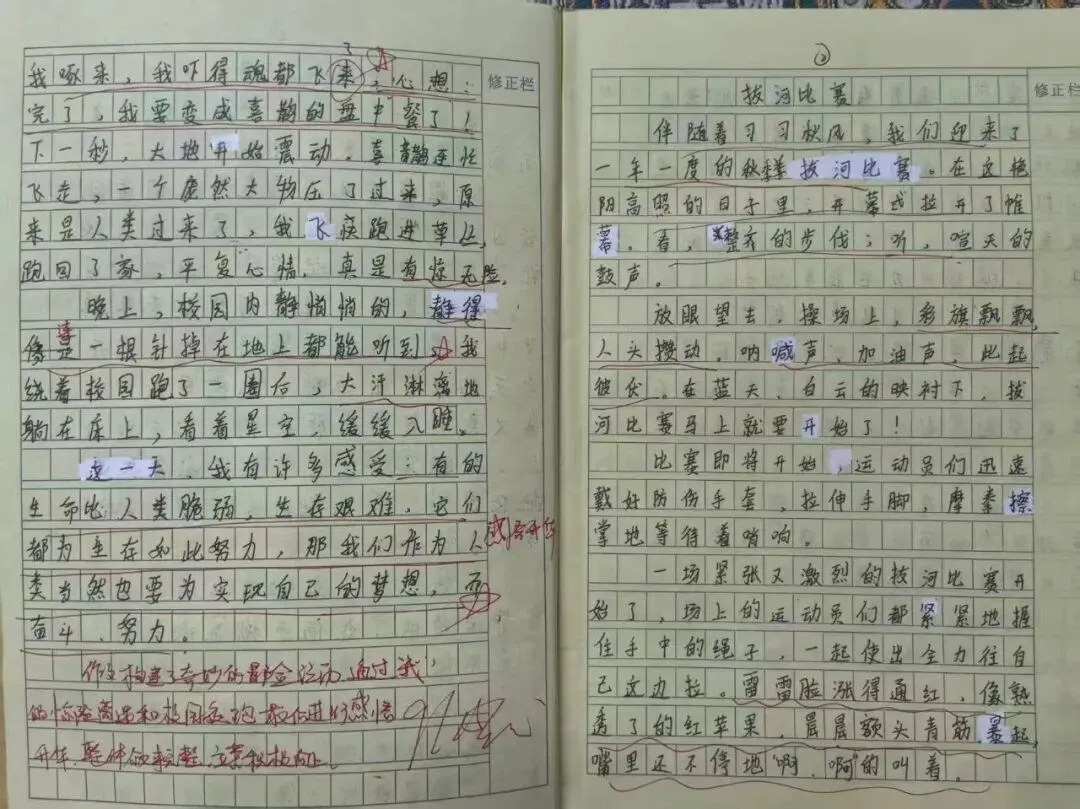 了
我啄来，我吓得魂都飞来，心想：
修正栏
完了，我要变成喜鹊的盘中餐了！
下一秒，大地开始震动，喜鹊连忙
飞走，一个庞然大物压了过来，原
来是人类过来了，我飞快跑进草丛，
跑回了家，平复心情，真是有惊无险。
晚上，校园内静悄悄的，静得
像是一根针掉在地上都能听到，我
连
绕着校园跑了一圈后，大汗淋漓地
躺在床上，看着星空，缓缓入睡。
这一天，我有许多感受：有的
生命比人类脆弱，生在艰难，它们
都为生在如此努力，那我们作为人
类当然也要为实现自己的梦想，而
奋斗、努力。
感悟升华
作文构建了奇妙的
通过我
的惊险遭遇和校园
最后进行感悟
升华，整体
立意积极向上。
②
拔河比赛
修正栏
伴随着习习秋风，我们迎来了
一年一度的秋季拔河比赛。在这艳
阳高照的日子里，开幕式拉开了帷
幕。看，整齐的步伐；听，喧天的
鼓声。
放眼望去，操场上，彩旗飘飘，
人头攒动，呐喊声、加油声，比起
彼伏。在蓝天、白云的映衬下，拔
河比赛马上就要开始了！
比赛即将开始，运动员们迅速
戴好防伤手套，拉伸手脚，摩拳擦
掌地等待着哨响。
一场紧张又激烈的拔河比赛开
始了，场上的运动员们都紧紧地握
住手中的绳子，一起使出全力往自
己这边拉。雷雷脸涨得通红，像熟
透了的红苹果，晨晨额头青筋暴起，
嘴里还不停地“啊，啊”的叫着。